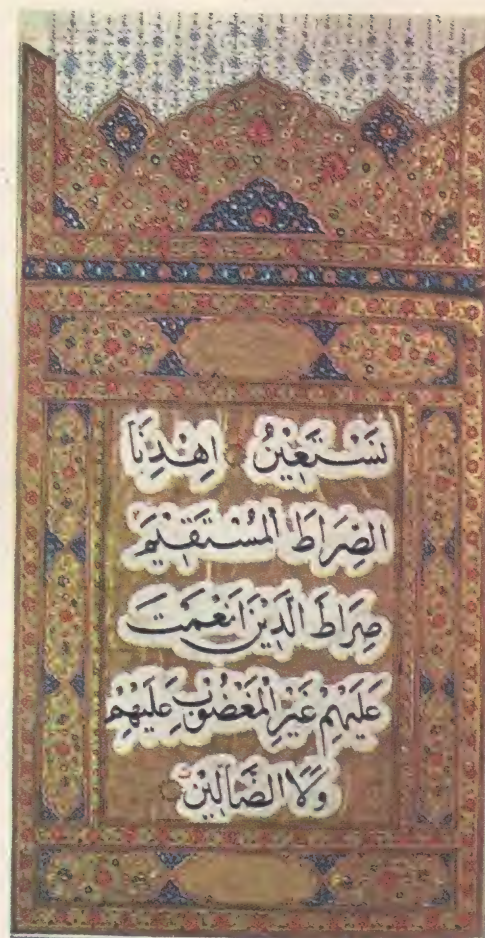 نَسْتَعِيْنُ اِهْدِنَا
الصِّرَاطَ الْمُسْتَقِيْمَ
صِرَاطَ الَّذِيْنَ اَنْعَمْتَ
عَلَيْهِمْ غَيْرِ الْمَغْضُوْبِ عَلَيْهِمْ
وَلَا الضَّالِّيْنَ